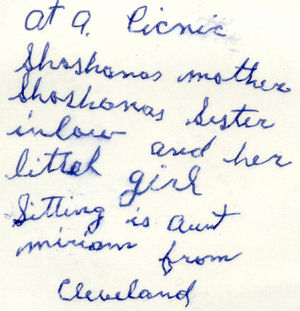 at a. Picnic
Shoshanas mother
Shoshanas Sister
inlow and her
littel girl
Sitting is aunt
miriam from
Cleveland